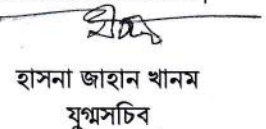 হাসনা জাহান খানম
যুগ্মসচিব